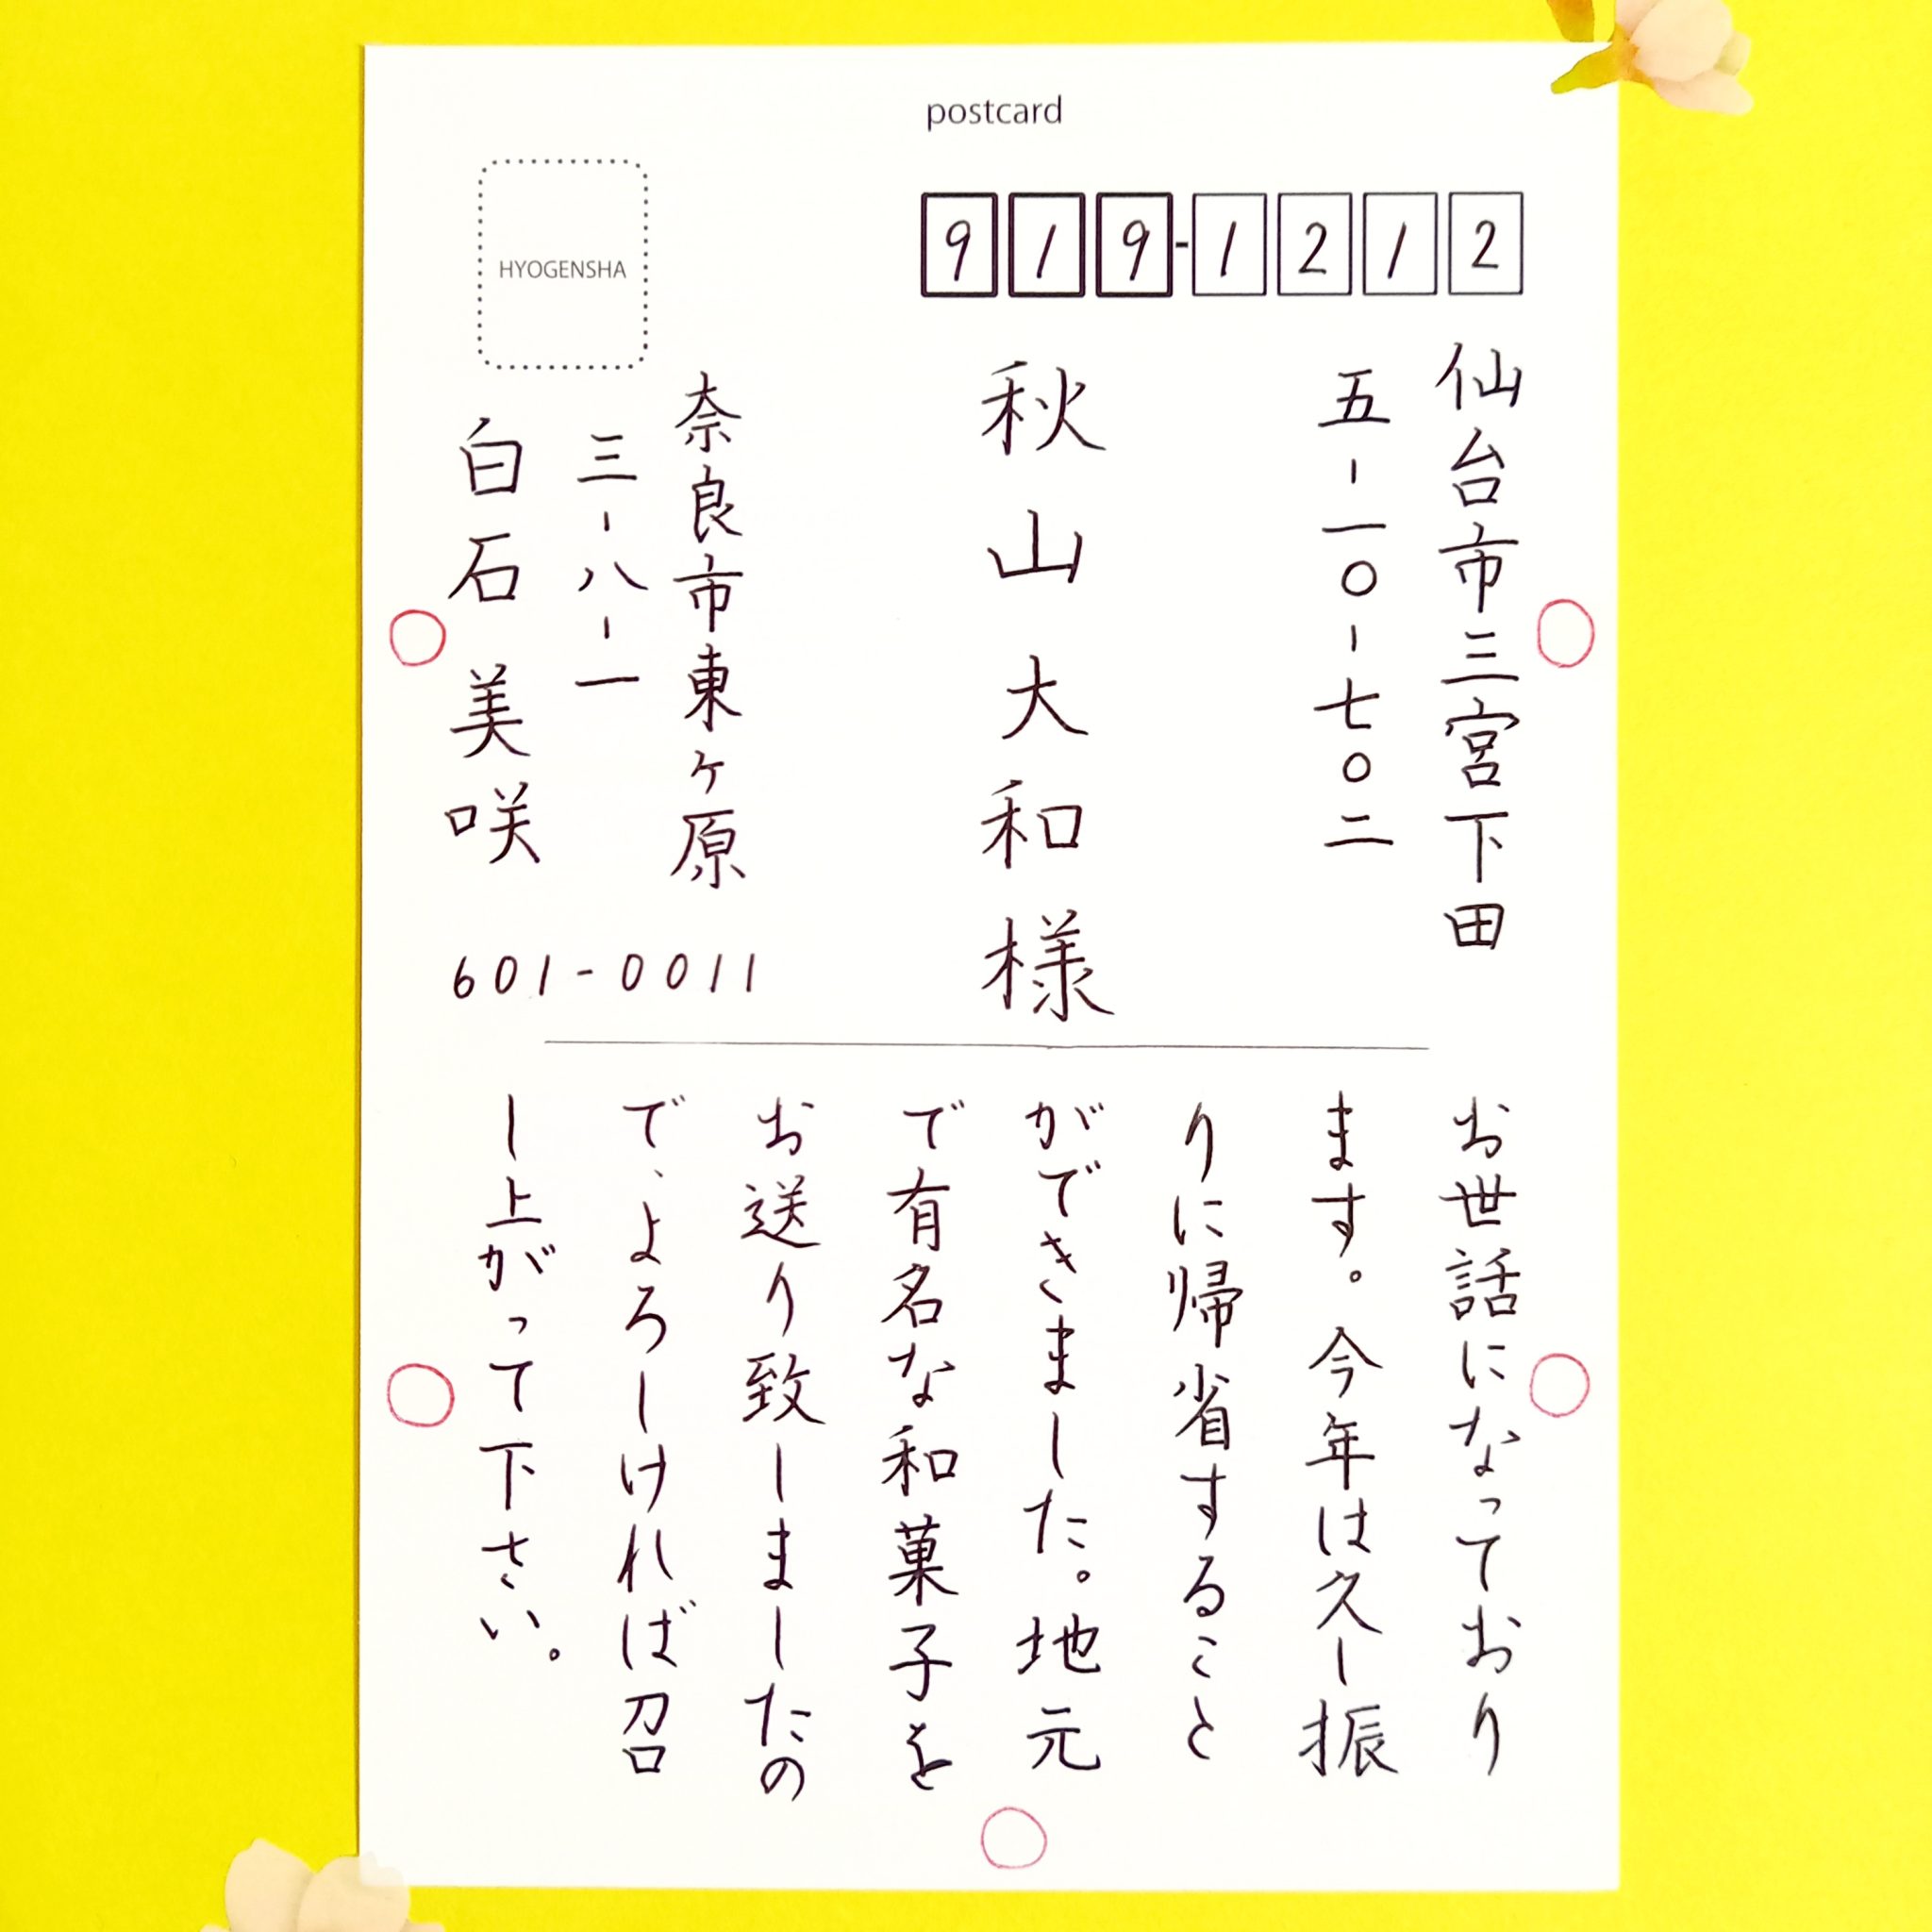 postcard
HYOGENSHA
919-1212
仙台市三宮下田
五-一〇-七〇二
秋山大和様
奈良市東ヶ原
三-八-一
白石美咲
601-0011
お世話になっており
ます。今年は久し振
りに帰省すること
ができました。地元
で有名な和菓子を
お送り致しましたの
で、よろしければ召
し上がって下さい。